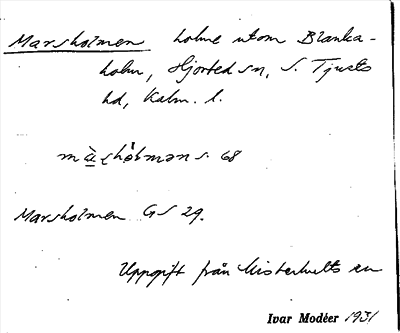 Marsholmen holme utom Blanka-
holm, Hjorted sn, S. Tjusts
hd, Kalm. l.
s. 68
Marsholmen GS 29.
Uppgift från Misterhults sn
Ivar Modéer 1931